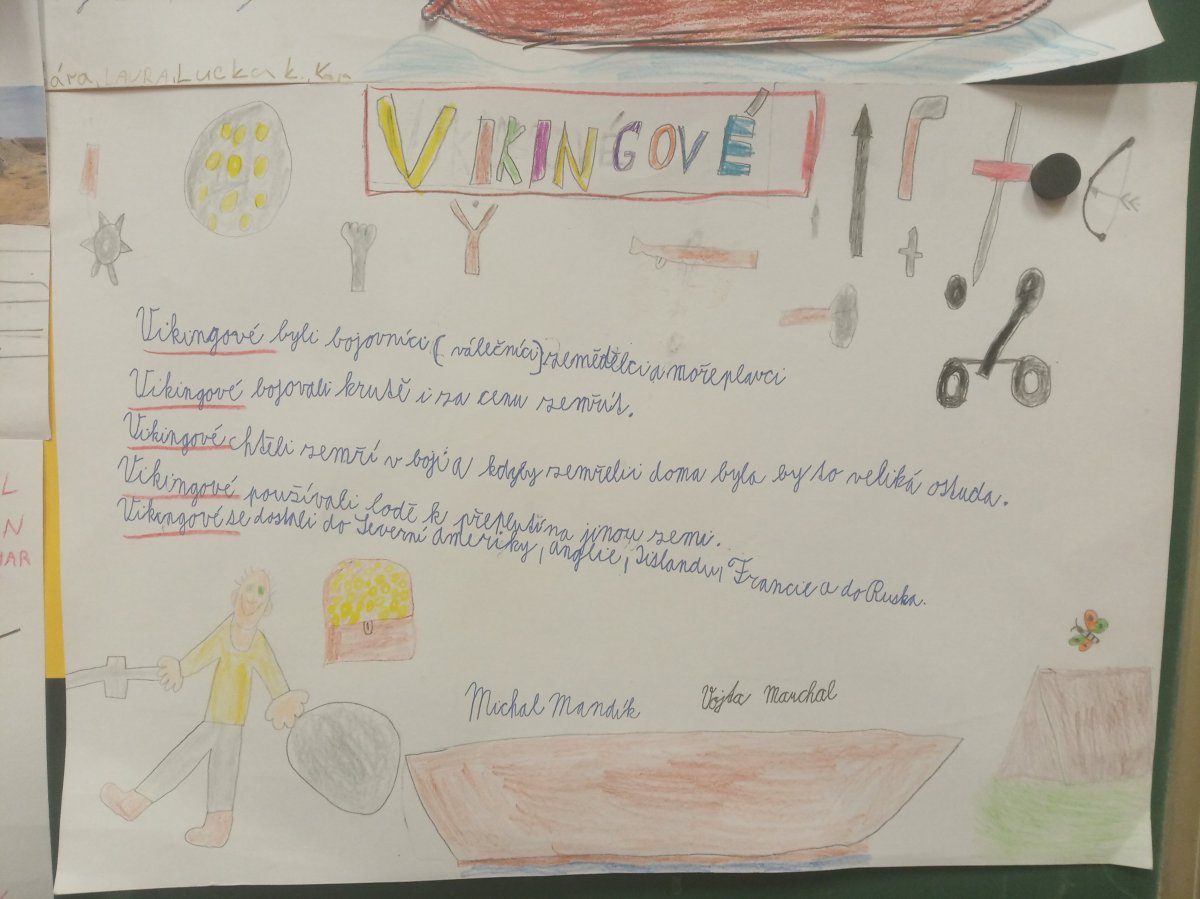 ára, LAURA, Lucka k., Kája
VIKINGOVÉ
Vikingové byli bojovníci (válečníci) zemědělci a mořeplavci
Vikingové bojovali krutě i za cenu zemřít.
Vikingové chtěli zemří v boji a kdyby zemřelii doma byla by to veliká ostuda.
Vikingové používali lodě k přeplutí na jinou zemi.
Vikingové se dostali do Severní ameriky, anglie, Islandu, Francie a do Ruska.
Michal Mandík Vojta Marchal
L
N
MAR